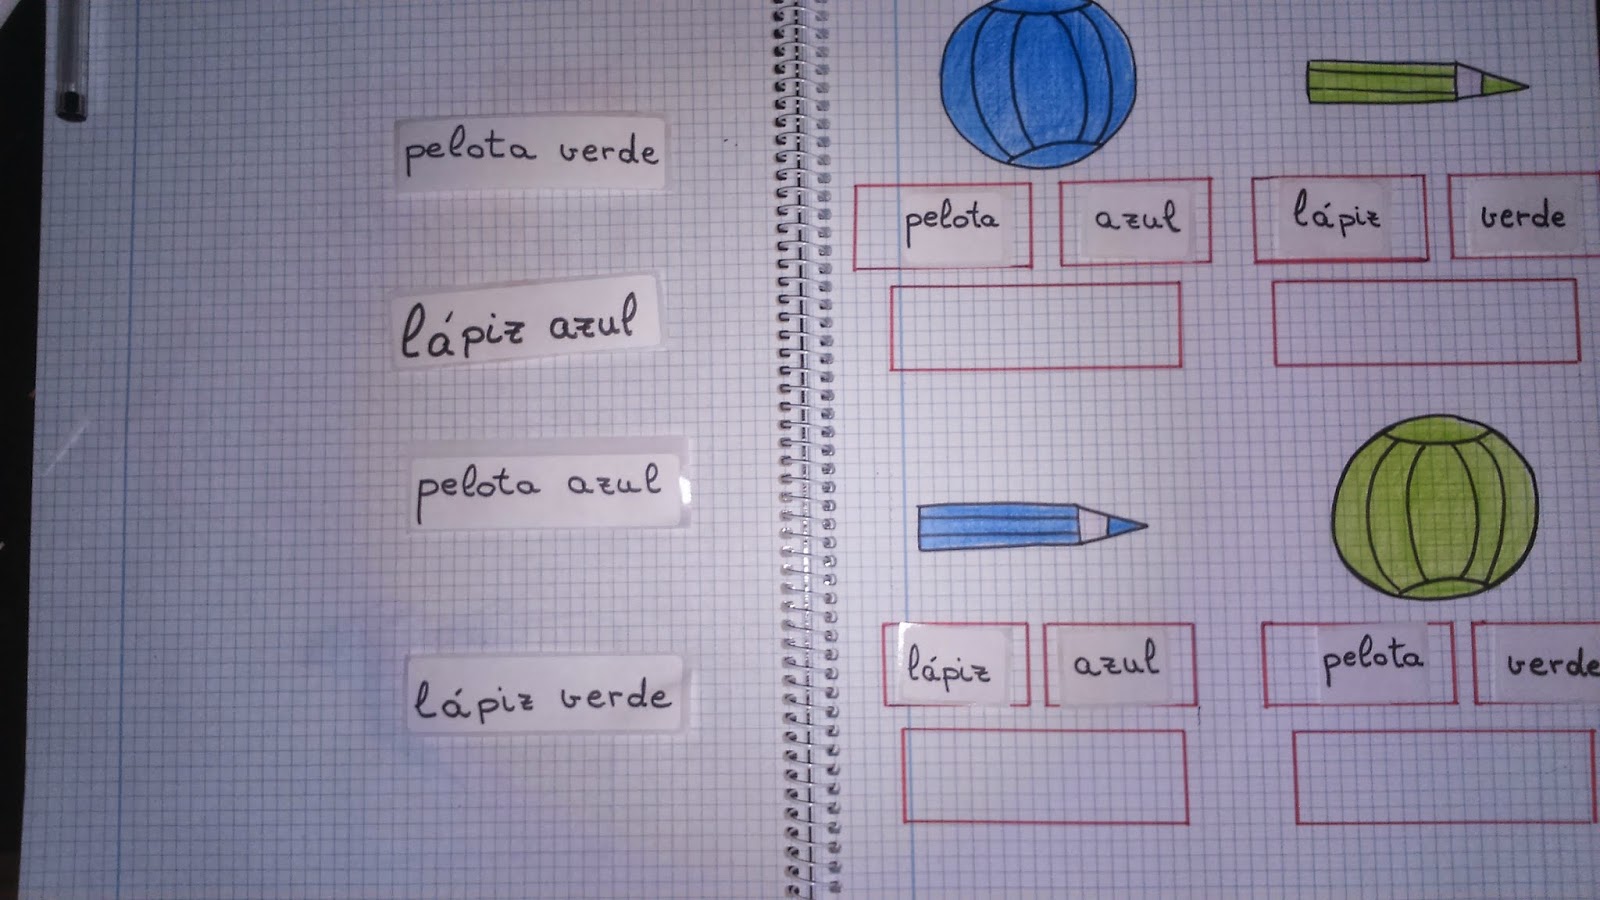 pelota verde
lápiz azul
pelota azul
lápiz verde
pelota azul
lápiz verde
lápiz azul
pelota verde